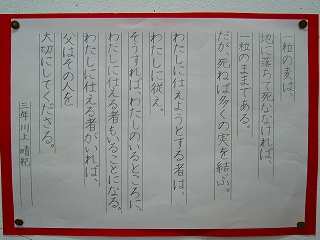 一粒の麦は、
地に落ちて死ななければ、
一粒のままである。
だが、死ねば多くの実を結ぶ。
わたしに仕えようとする者は、
わたしに従え。
そうすれば、わたしのいるところに、
わたしに仕える者もいることになる。
わたしに仕える者がいれば、
父はその人を
大切にしてくださる。
三年川上 晴紀